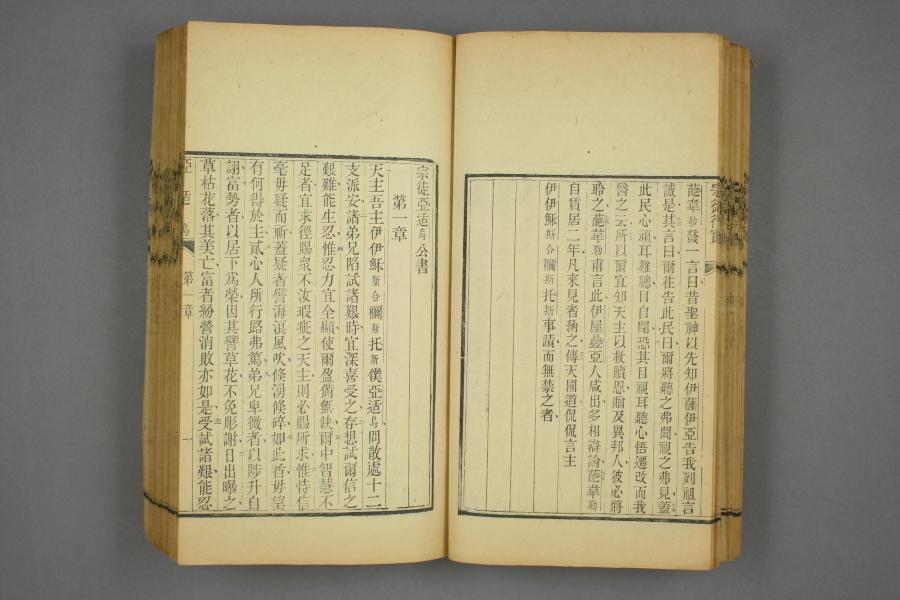 葩韋勒發一言曰昔聖神以先知伊薩伊亞告我列祖言
誠是其言曰爾往告此民曰爾將聽之弗聞視之弗見蓋
此民心頑耳難聽目自閉恐其目視耳聽心悟遷改而我
醫之云所以爾宜知天主以救贖恩賜及異邦人彼必將
聆之葩韋勒甫言此伊屋疊亞人咸出多相辯論葩韋勒
自賃居二年凡來見者納之傳天國道侃侃言主
伊伊穌斯合禰斯托斯事蹟而無禁之者
宗徒亞适烏公書
第一章
天主吾主伊伊穌斯合禰斯托斯僕亞适烏問散處十二
支派安諸弟兄陷試諸艱時宜深喜受之存想試爾信之
艱難能生忍惟忍力宜全顯使爾盈備無缺爾中智慧不
足者宜求徑賜眾不汝瑕疵之天主則必賜所求惟恃信
毫毋疑而祈蓋疑者譬海浪風吹倏湧倏碎如此者毋望
有何得於主貳心人所行路弗篤弟兄卑微者以陟升自
詡富勢者以居下為榮因其譬草花不免彫謝日出曝之
草枯花落其美亡富者紛營消敗亦如是受試諸艱能忍
亞适烏 第一章 一